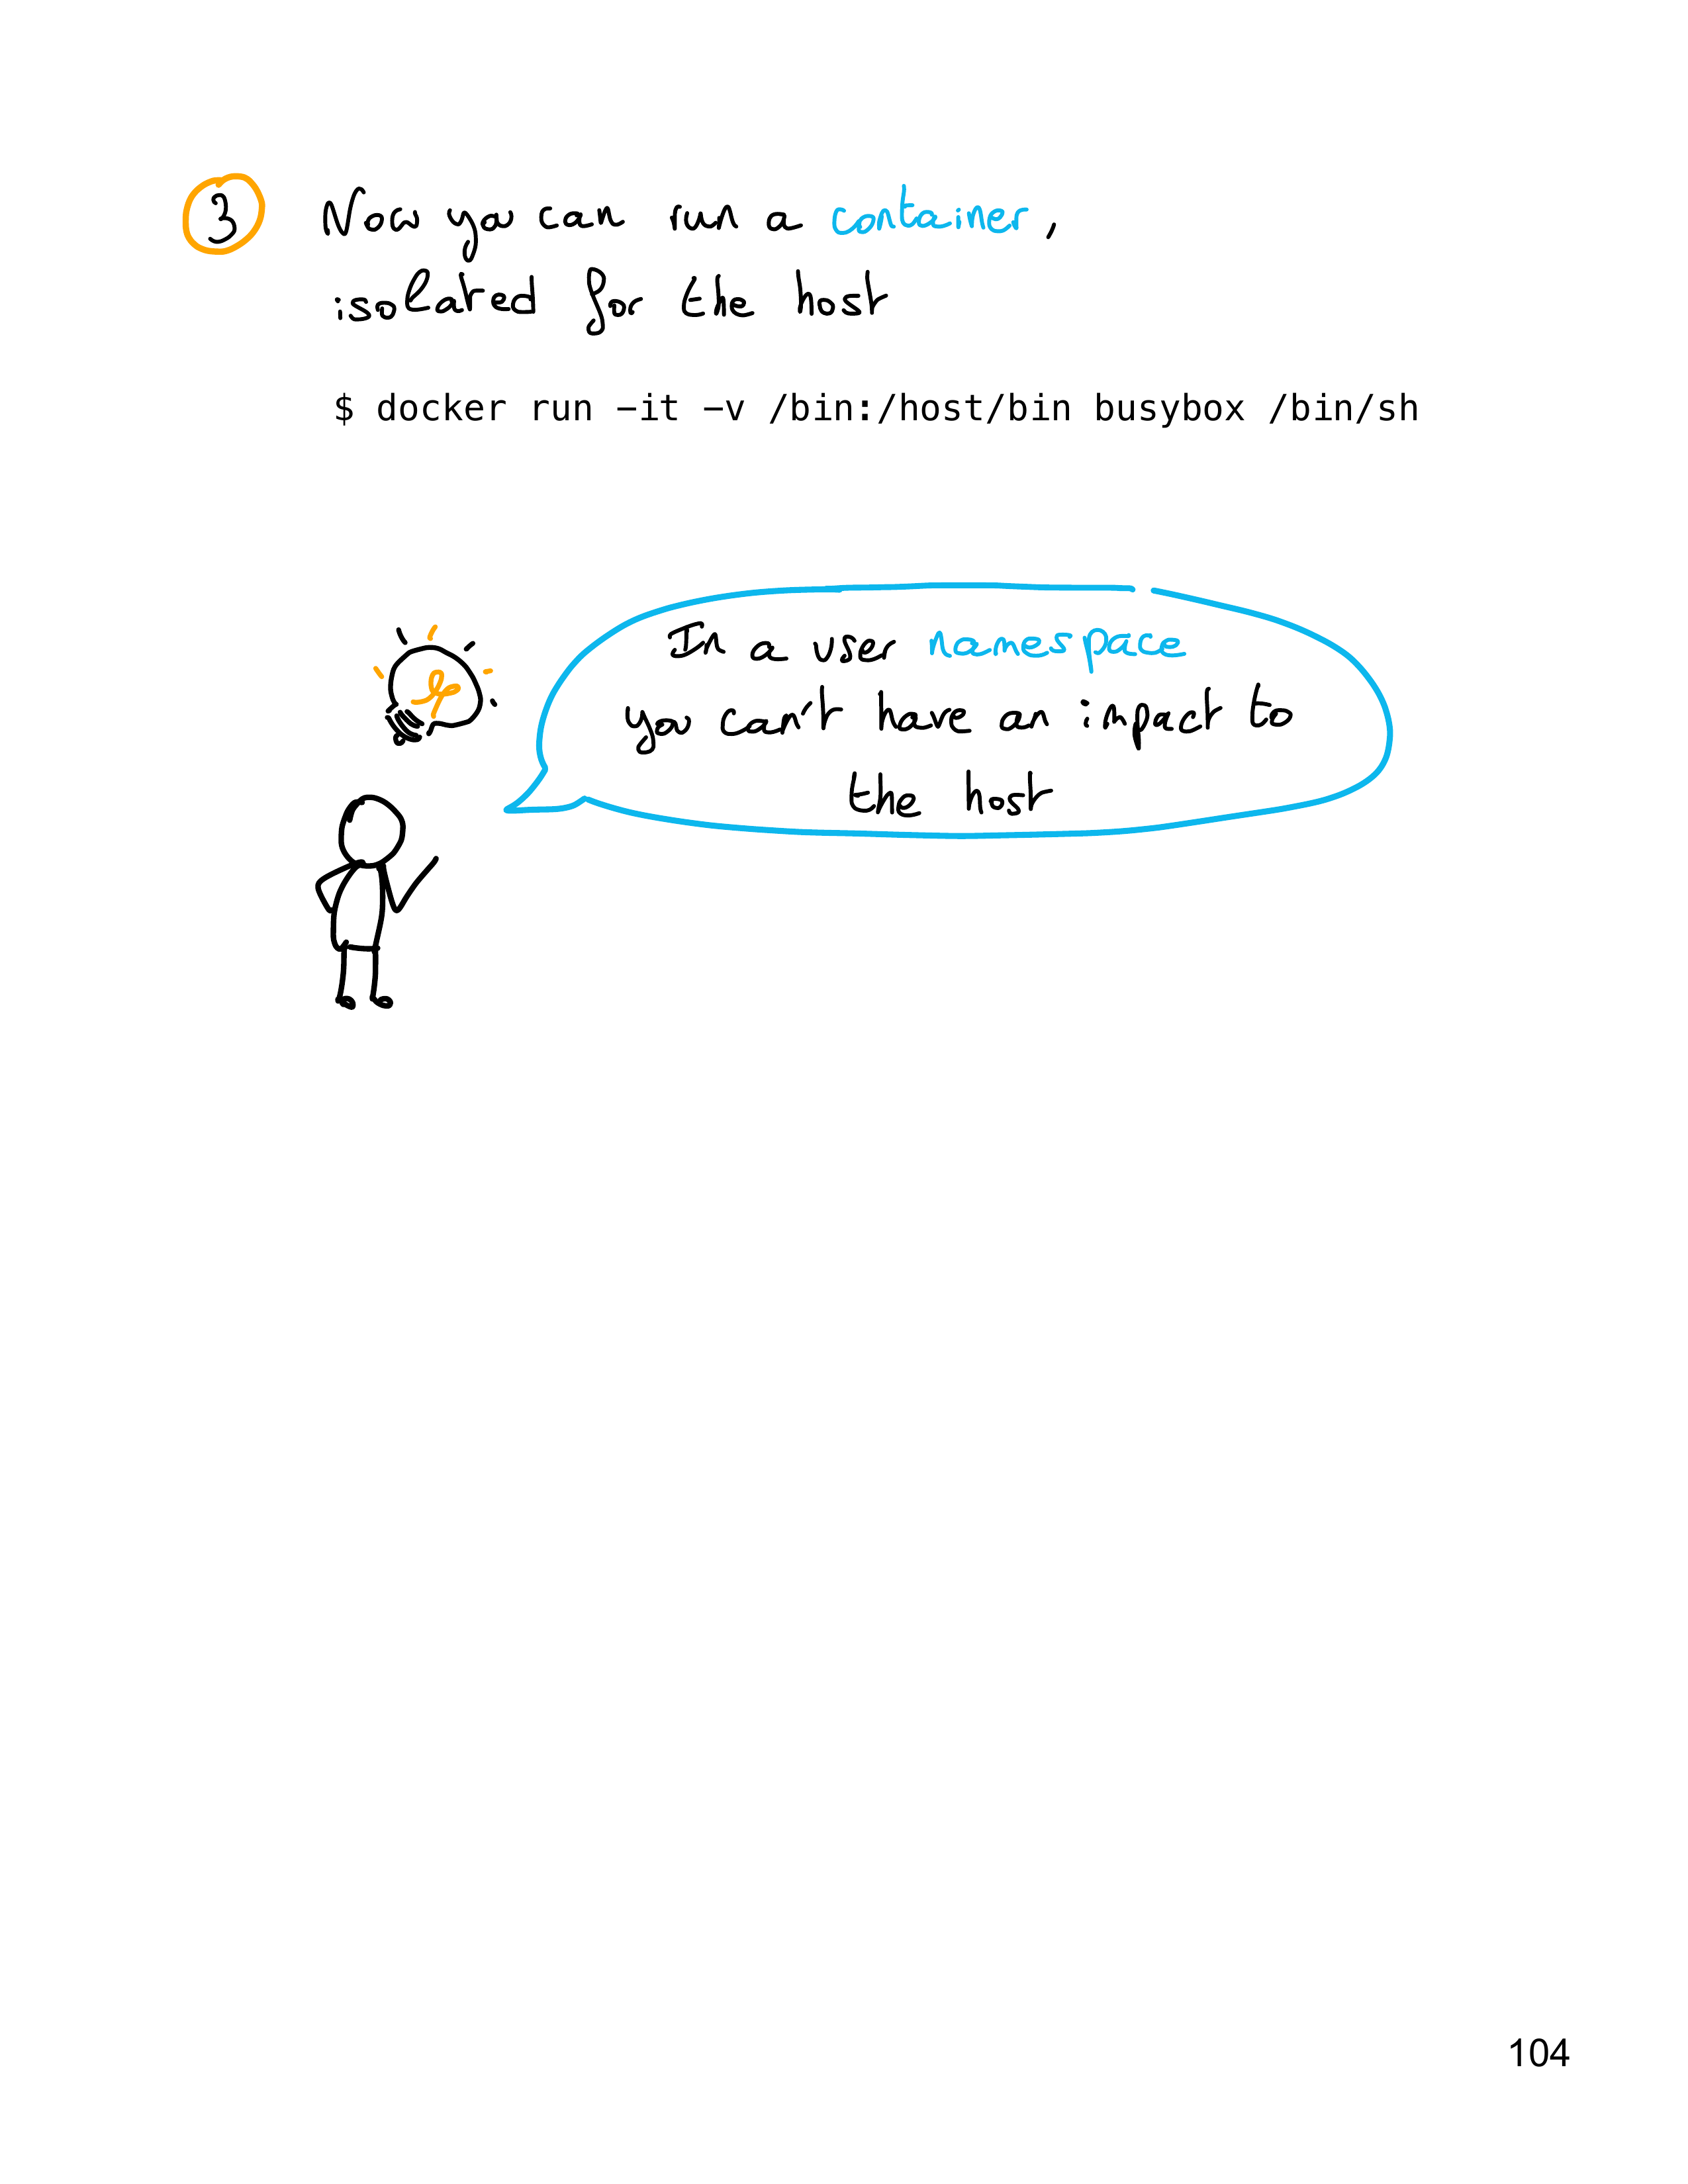 3 Now you can run a container,
isolated for the host
$ docker run -it -v /bin:/host/bin busybox /bin/sh
In a user namespace
you can't have an impact to
the host
104